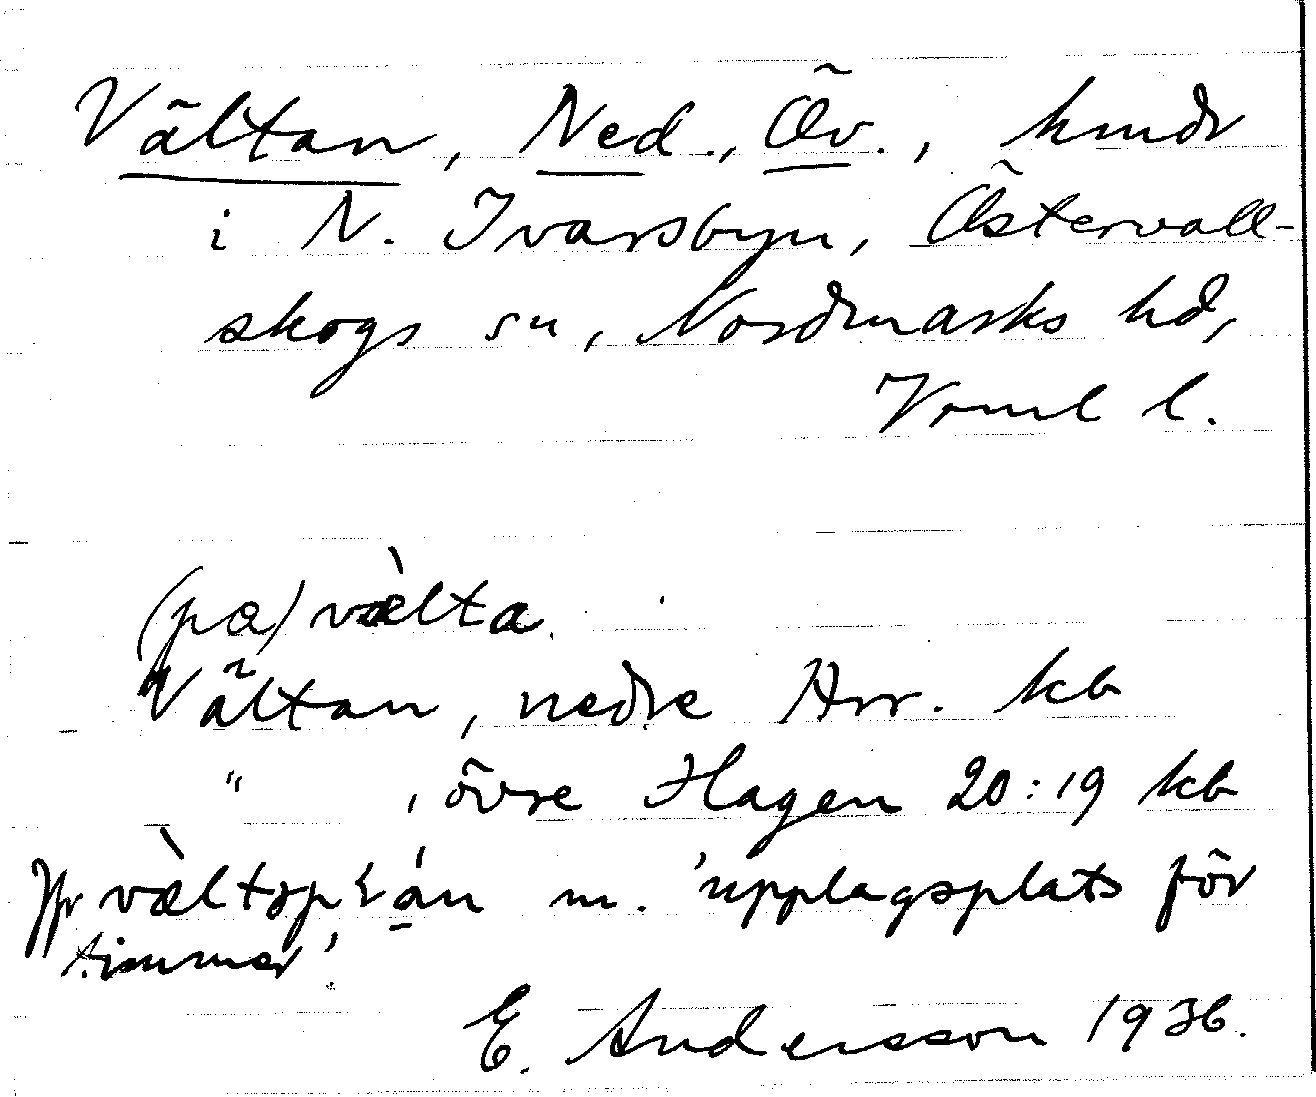 Vältan, Ned., Öv., hmdr
i N. Ivarsbyn, Östervall-
skogs sn, Nordmarks hd,
Vrml l.
(pa) vælta.
Vältan, nedre Arr. kb
" , övre Hagen 20:19 kb
Jfr m. 'upplagsplats för
timmer'.
E. Andersson 1936.